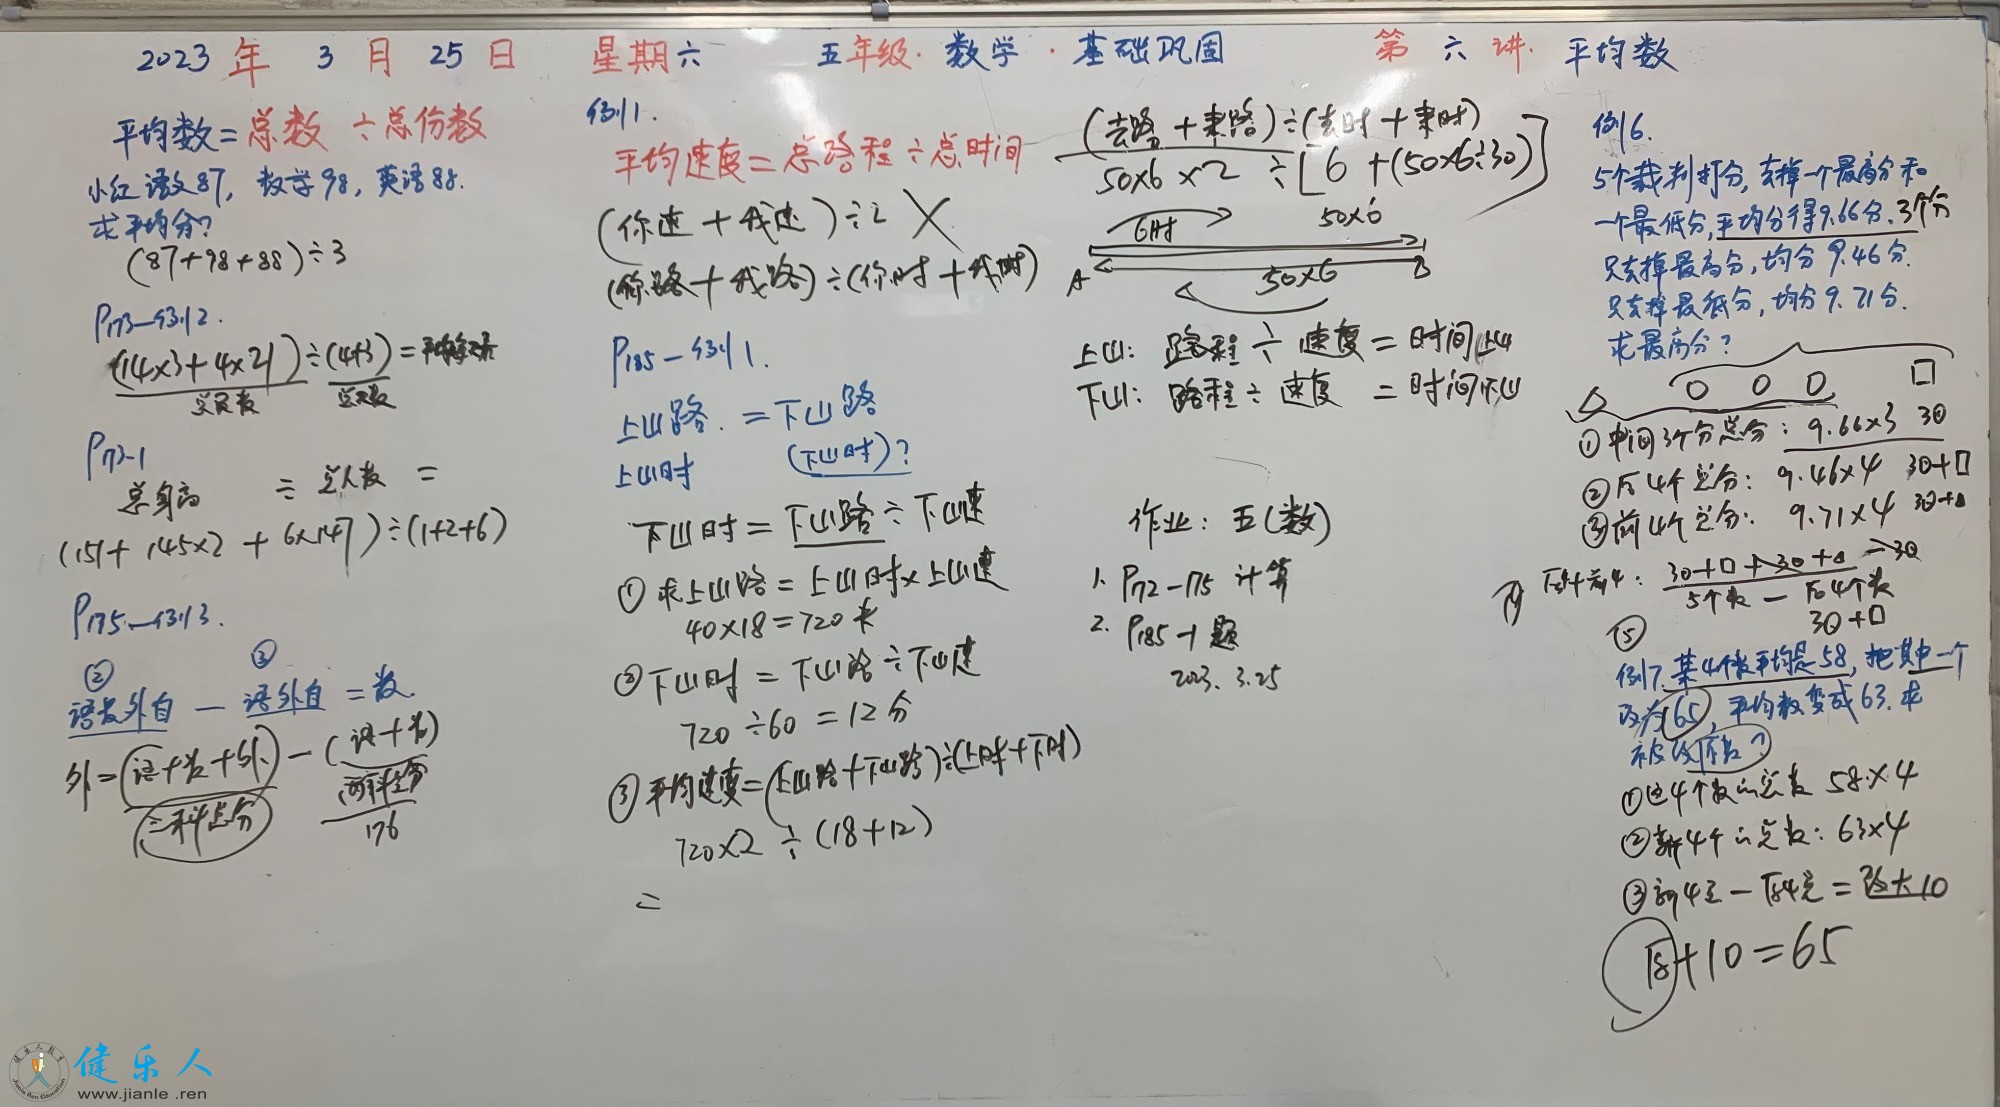 2023年 3月 25日 星期六 五年级·数学·基础巩固 第六讲. 平均数
平均数=总数÷总份数
小红语文87, 数学98, 英语88.
求平均分?
(87+98+88)÷3
P173-例2.
(14×3+4×21)÷(4+3)=平均每天
总页数 总天数
P173-1
总身高 ÷ 总人数 =
(151+145×2+6×147)÷(1+2+6)
P175-例3.
② ③
语数外自 - 语外自 = 数.
外=(语+数+外)-(语+数)
三科总分 两科总分
176
例1.
平均速度=总路程÷总时间
(你速+我速)÷2 ×
(你路+我路)÷(你时+我时)
P185-例1.
上山路 = 下山路
上山时 (下山时)?
下山时=下山路÷下山速
①求上山路=上山时×上山速
40×18=720米
②下山时=下山路÷下山速
720÷60=12分
③平均速度=(上山路+下山路)÷(上时+下时)
720×2÷(18+12)
=
(去路+来路)÷(去时+来时)
50×6×2÷[6+(50×6÷30)]
6时 50×6
A 50×6 B
上山: 路程÷速度=时间上山
下山: 路程÷速度=时间下山
作业: 五(数)
1. P172-175 计算
2. P185-1题
2023.3.25
例6.
5个裁判打分, 去掉一个最高分和
一个最低分, 平均分得9.66分. 3个分
只去掉最高分, 均分9.46分.
只去掉最低分, 均分9.71分.
求最高分?
△ ○ ○ ○ □
①中间3个分总分: 9.66×3 3○
②后4个总分: 9.46×4 3○+□
③前4个总分: 9.71×4 3○+△
后4+前4: 3○+□+3○+△-3○
5个数-后4个数
3○+□
⑤
例7. 某4个数平均是58, 把其中一个
改为65, 平均数变成63. 求
被改原数?
①这4个数的总数 58×4
②新4个的总数: 63×4
③新4总-原4总=改大10
原+10=65
健乐人
www.jianle.ren